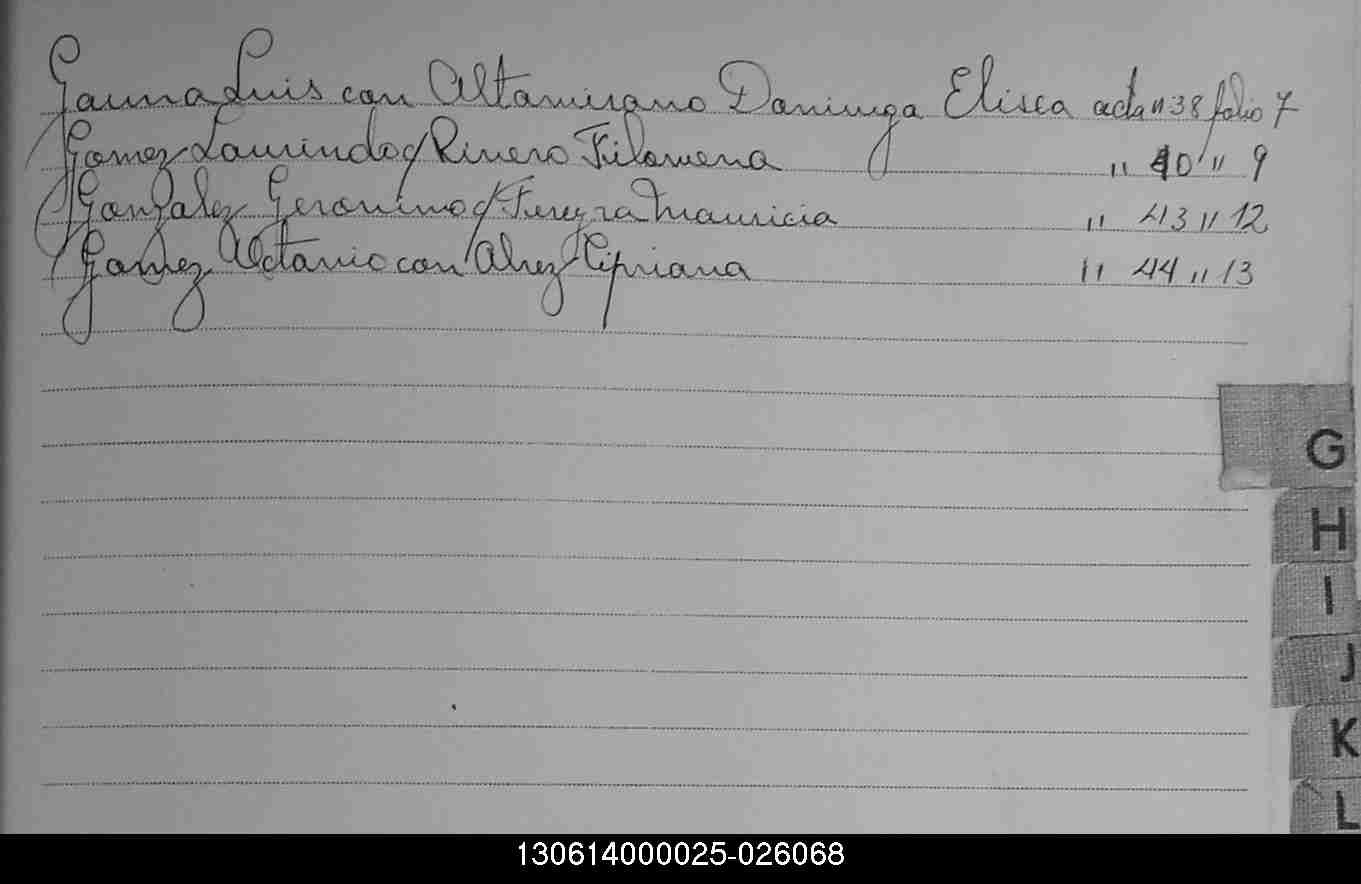 Gauna Luis con Altamirano Daniuga Elisea acta n 38 folio 7
Gomez Laurindo c/ Rivero Filomena " 40 " 9
Gonzalez Geronimo c/ Fereyra Mauricia " 43 " 12
Gomez Octavio con Alvez Cipriana " 44 " 13
G
H
I
J
K
L
130614000025-026068